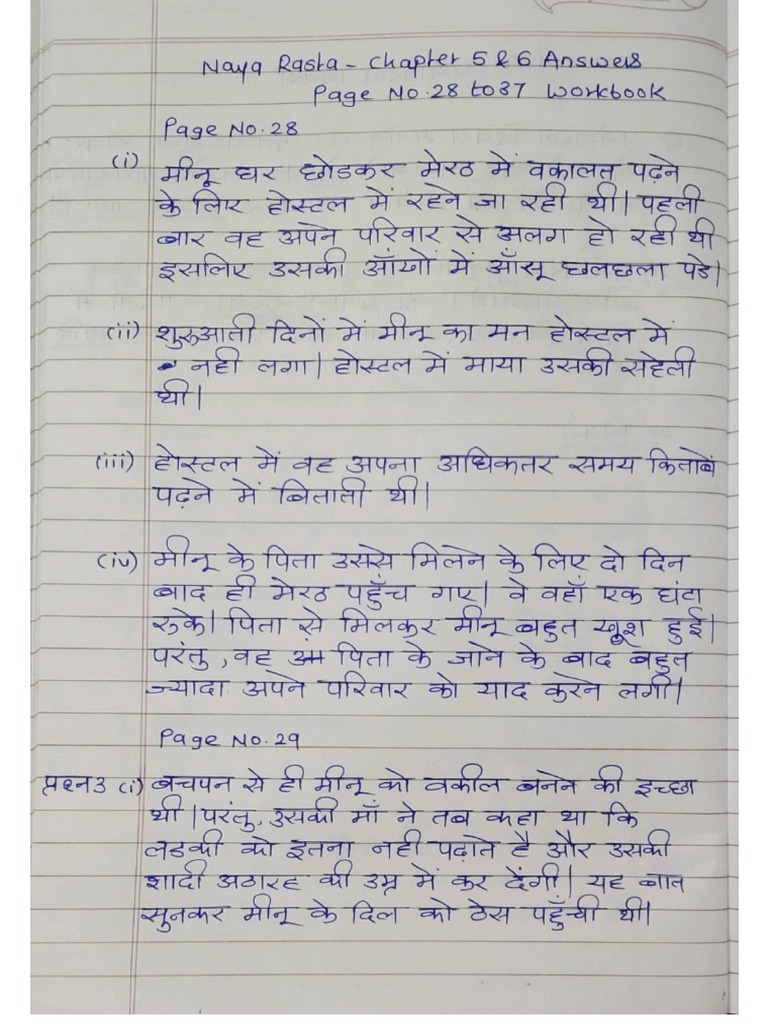 Naya Rasta - Chapter 5 & 6 Answers
Page No. 28 to 37 Workbook
Page No. 28
(i) मीनू घर छोडकर मेरठ में वकालत पढ़ने
के लिए होस्टल में रहने जा रही थी। पहली
बार वह अपने परिवार से अलग हो रही थी
इसलिए उसकी आँखो में आँसू छलछला पडे।
(ii) शुरुआती दिनों में मीनू का मन होस्टल में
नही लगा। होस्टल में माया उसकी सहेली
थी।
(iii) होस्टल में वह अपना अधिकतर समय किताबें
पढ़ने में बिताती थी।
(iv) मीनू के पिता उससे मिलने के लिए दो दिन
बाद ही मेरठ पहुँच गए। वे वहाँ एक घंटा
रुके। पिता से मिलकर मीनू बहुत खुश हुई।
परंतु, वह पिता के जाने के बाद बहुत
ज्यादा अपने परिवार को याद करने लगी।
Page No. 29
प्रश्न3 (i) बचपन से ही मीनू को वकील बनने की इच्छा
थी। परंतु, उसकी माँ ने तब कहा था कि
लडकी को इतना नही पढ़ाते है और उसकी
शादी अठारह की उम्र में कर देंगी। यह बात
सुनकर मीनू के दिल को ठेस पहुँची थी।